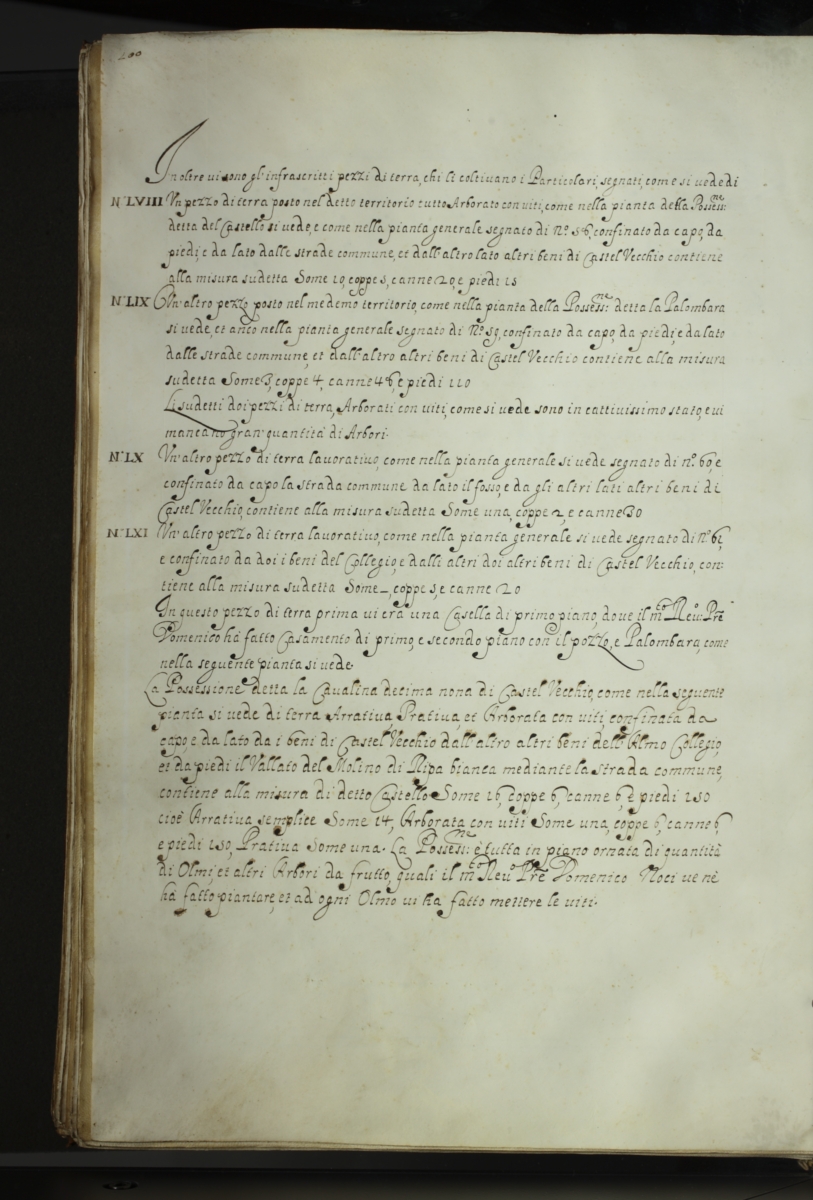 200
In oltre vi sono gl'infrascritti pezzi di terra, chi li coltivano i Particolari, segnati, come si vede di
N.º LVIII Un pezzo di terra posto nel detto territorio tutto Arborato con viti, come nella pianta della Possess:ne
detta del Castello si vede, e come nella pianta generale segnato di N.º 58, confinato da capo, da
piedi, e da lato dalle strade commune, et dall'altro lato altri beni di Castel Vecchio contiene
alla misura sudetta Some 10, coppe 5, canne 20, e piedi 15
N.º LIX Un'altro pezzo posto nel medemo territorio, come nella pianta della Possess:ne detta la Palombara
si vede, et anco nella pianta generale segnato di N.º 59, confinato da capo, da piedi, e da lato
dalle strade commune, et dall'altro altri beni di Castel Vecchio contiene alla misura
sudetta Some 3, coppe 4, canne 46, e piedi 110
Li sudetti doi pezzi di terra, Arborati con viti, come si vede sono in cattivissimo stato, e vi
mancano gran quantità di Arbori.
N.º LX Un'altro pezzo di terra lavorativo, come nella pianta generale si vede segnato di n.º 60, e
confinato da capo la strada commune da lato il fosso, e da gli altri lati altri beni di
Castel Vecchio, contiene alla misura sudetta Some una, coppe 2, e canne 30
N.º LXI Un'altro pezzo di terra lavorativo, come nella pianta generale si vede segnato di N.º 61,
e confinato da doi i beni del Collegio, e dalli altri doi altri beni di Castel Vecchio, con:
tiene alla misura sudetta Some –, coppe 5, e canne 20
In questo pezzo di terra prima vi era una Casella di primo piano, dove il m:to Rev:o Pre
Domenico há fatto Casamento di primo, e secondo piano con il pozzo, e Palombara, come
nella seguente pianta si vede.
La Possessione detta la Cavalina decima nona di Castel Vecchio, come nella seguente
pianta si vede di terra Arrativa, Prativa, et Arborata con viti, confinata da
capo, e da lato da i beni di Castel Vecchio dall'altro altri beni dell'Almo Collegio,
et da piedi il Vallato del Molino di Ripa bianca mediante la strada commune,
contiene alla misura di detto Castello Some 16, coppe 6, canne 6, e piedi 150
cioè Arrativa semplice Some 14, Arborata con viti Some una, coppe 6, canne 6
e piedi 150, Prativa Some una. La Possess:ne è tutta in piano ornata di quantità
di Olmi, et altri Arbori da frutto, quali il m:to Rev:o Pre Domenico Noci ve nè
há fatto piantare, et ad ogni Olmo vi ha fatto mettere le viti.